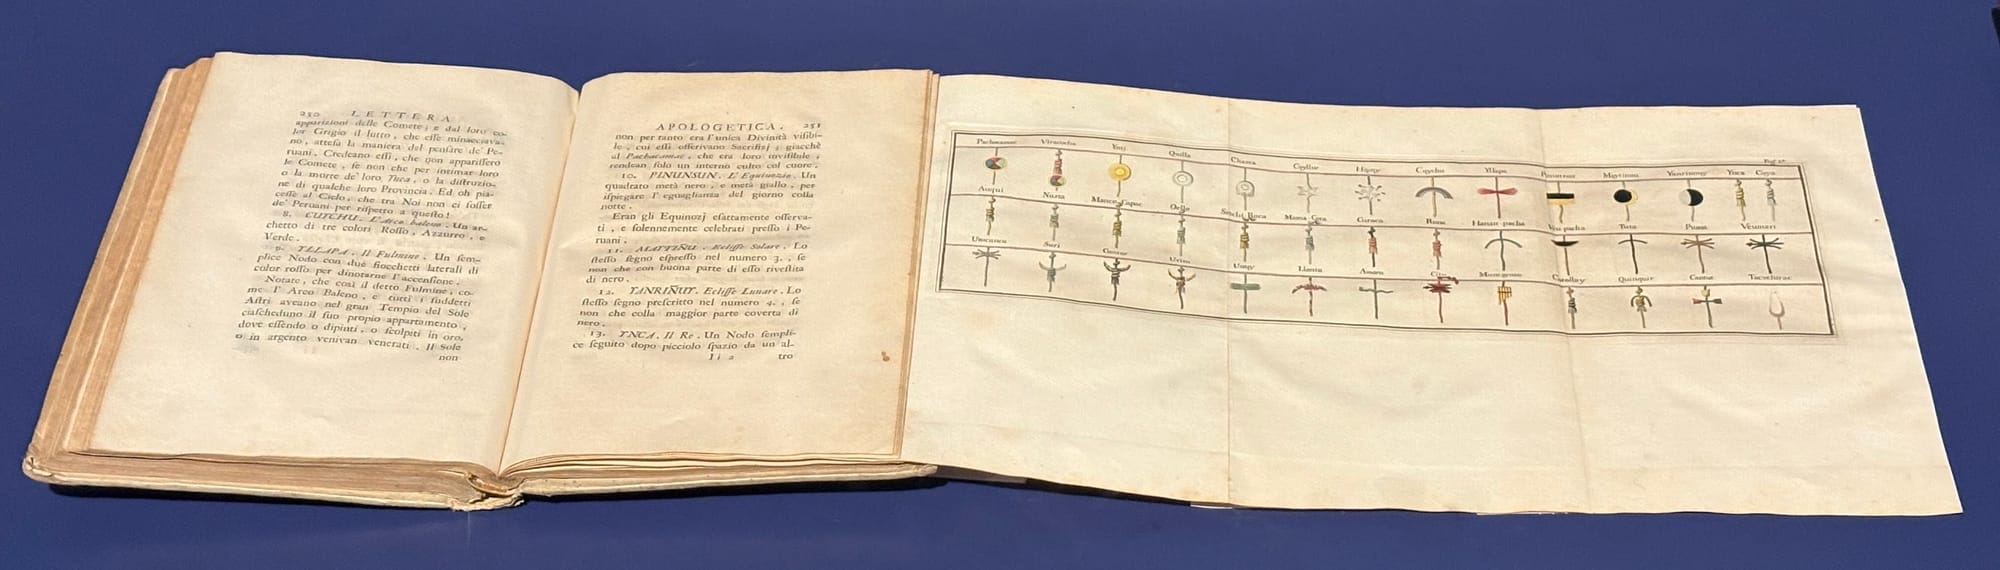 250 LETTERA
apparizioni delle Comete; e dal loro co-
lor Grigio il lutto, che esse minacciava-
no, attesa la maniera del pensare de' Pe-
ruani. Credeano essi, che non apparissero
le Comete, se non che per intimar loro
o la morte de' loro Ynca, o la distruzio-
ne di qualche loro Provincia. Ed oh pia-
cesse al Cielo, che tra Noi non ci fosser
de' Peruani per rispetto a questo!
8. CUTCHU. L'Arco baleno. Un ar-
chetto di tre colori Rosso, Azzurro, e
Verde.
9. YLLAPA. Il Fulmine. Un sem-
plice Nodo con due fiocchetti laterali di
color rosso per dinotarne l'accensione.
Notate, che così il detto Fulmine, co-
me l'Arco Baleno, e tutti i suddetti
Astri aveano nel gran Tempio del Sole
ciascheduno il suo propio appartamento,
dove essendo o dipinti, o scolpiti in oro,
o in argento venivan venerati. Il Sole
non
APOLOGETICA. 251
non per tanto era l'unica Divinità visibi-
le, cui essi offerivano Sacrifizj; giacchè
al Pachacamac, che era loro invisibile,
rendean solo un interno culto col cuore.
10. PINUNSUN. L'Equinozio. Un
quadrato metà nero, e metà giallo, per
ispiegare l'eguaglianza del giorno colla
notte.
Eran gli Equinozj esattamente osserva-
ti, e solennemente celebrati presso i Pe-
ruani.
11. MATTINU. Eclisse Solare. Lo
stesso segno espresso nel numero 3., se
non che con buona parte di esso rivestita
di nero.
12. YANRIÑUY. Eclisse Lunare. Lo
stesso segno prescritto nel numero 4., se
non che colla maggior parte coverta di
nero.
13. YNCA. Il Re. Un Nodo sempli-
ce seguito dopo picciolo spazio da un al-
Ii 2 tro
Pachacamac Viracocha Ynti Quilla Chasca Coyllur Cuychu Yllapa Pinunsun Mayttinnu Yanrinnuy Ynca Coya
Auqui Nusta Manco Capac Oello Sinchi Roca Mama Cora Curaca Runa Hanan pacha Veu pacha Tuta Puma Veumari
Suri Cuntur Uritu Unuy Llautu Amaru Quinquir Cantut